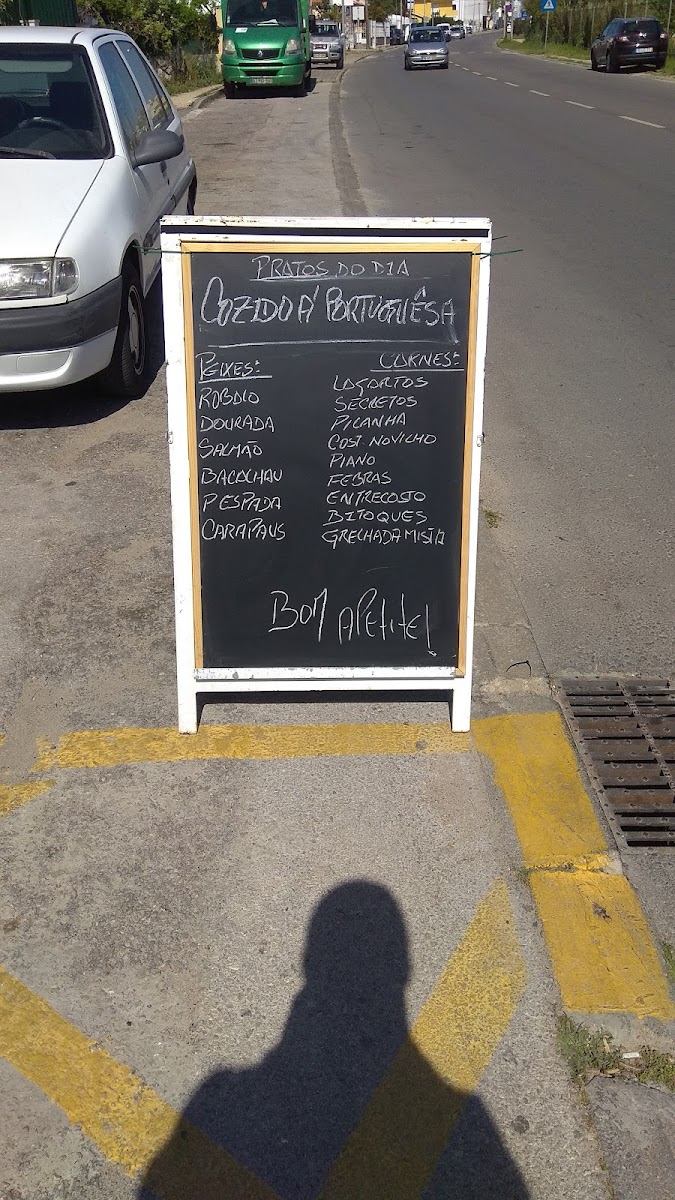 PRATOS DO DIA
COZIDO Á PORTUGUÊSA
PEIXES:
ROBALO
DOURADA
SALMÃO
BACALHAU
P ESPADA
CARAPAUS
CARNES:
LAGARTOS
SECRETOS
PICANHA
COST NOVILHO
PIANO
FEBRAS
ENTRECOSTO
BITOQUES
GRELHADA MISTA
BOM APetite!